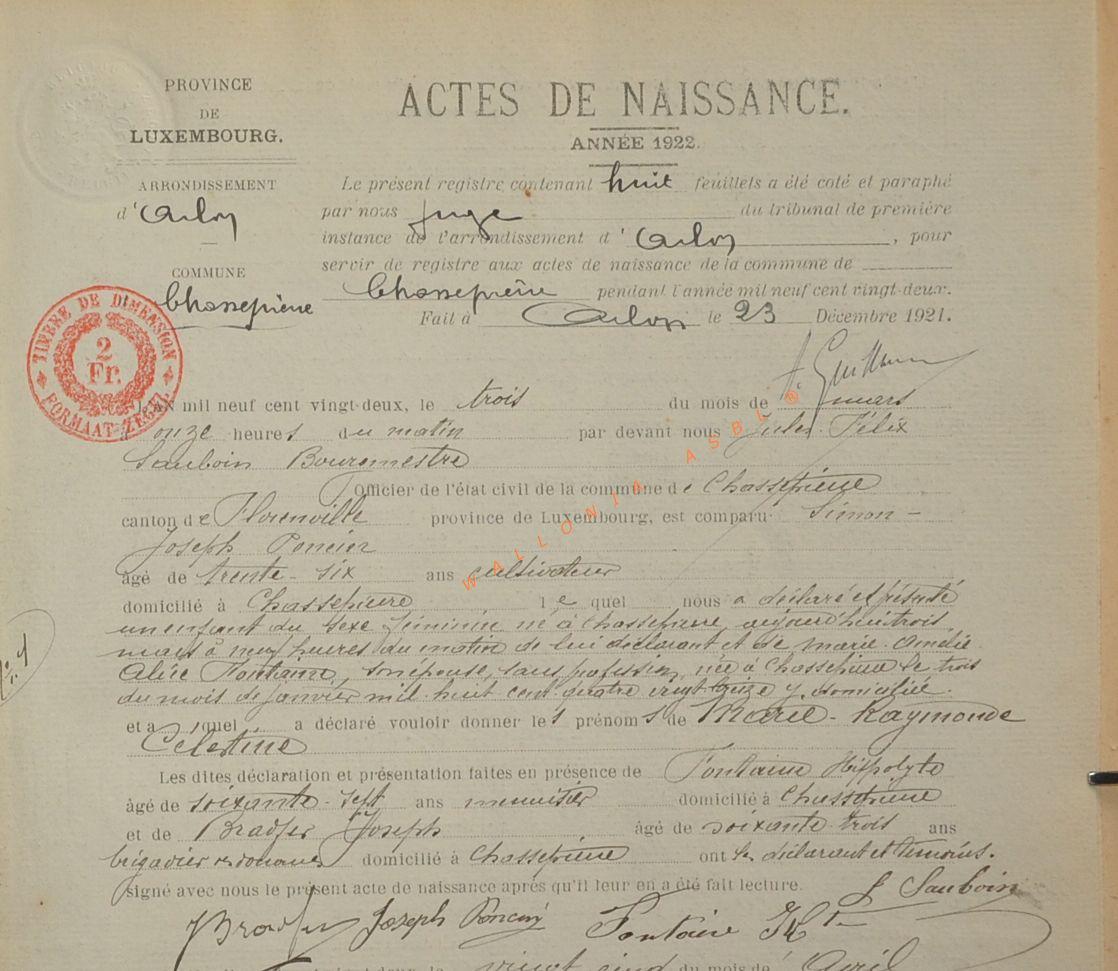 PROVINCE
DE
LUXEMBOURG.
ACTES DE NAISSANCE.
ANNÉE 1922.
ARRONDISSEMENT
d'Arlon
COMMUNE
Chassepierre
Le présent registre contenant huit feuillets a été coté et paraphé
par nous juge du tribunal de première
instance de l'arrondissement d'Arlon, pour
servir de registre aux actes de naissance de la commune de
Chassepierre pendant l'année mil neuf cent vingt-deux.
Fait à Arlon le 23 Décembre 1921.
TIMBRE DE DIMENSION
2
Fr.
FORMAAT-ZEGEL
L'an mil neuf cent vingt-deux, le trois du mois de mars
à onze heures du matin par devant nous Jules Félix
Sauboin Bourgmestre
Officier de l'état civil de la commune de Chassepierre
canton de Florenville province de Luxembourg, est comparu Simon-
Joseph Poncin
âgé de trente-six ans cultivateur
domicilié à Chassepierre lequel nous a déclaré et présenté
un enfant du sexe féminin né à Chassepierre, aujourd'hui trois
mars à neuf heures du matin de lui déclarant et de Marie-Amélie
Alice Fontaine, son épouse, sans profession, née à Chassepierre le trois
du mois de janvier mil huit cent quatre vingt y domiciliée.
et a quel a déclaré vouloir donner les prénoms de Marie-Raymonde
Célestine
Les dites déclaration et présentation faites en présence de Fontaine Hippolyte
âgé de soixante-sept ans menuisier domicilié à Chassepierre
et de Bradfer Joseph âgé de soixante-trois ans
brigadier domicilié à Chassepierre ont les déclarant et témoins.
signé avec nous le présent acte de naissance après qu'il leur en a été fait lecture.
J Sauboin
Bradfer Joseph Poncin Fontaine Hte
vingt cinq du mois de Avril
WALLONIA ASBL ®